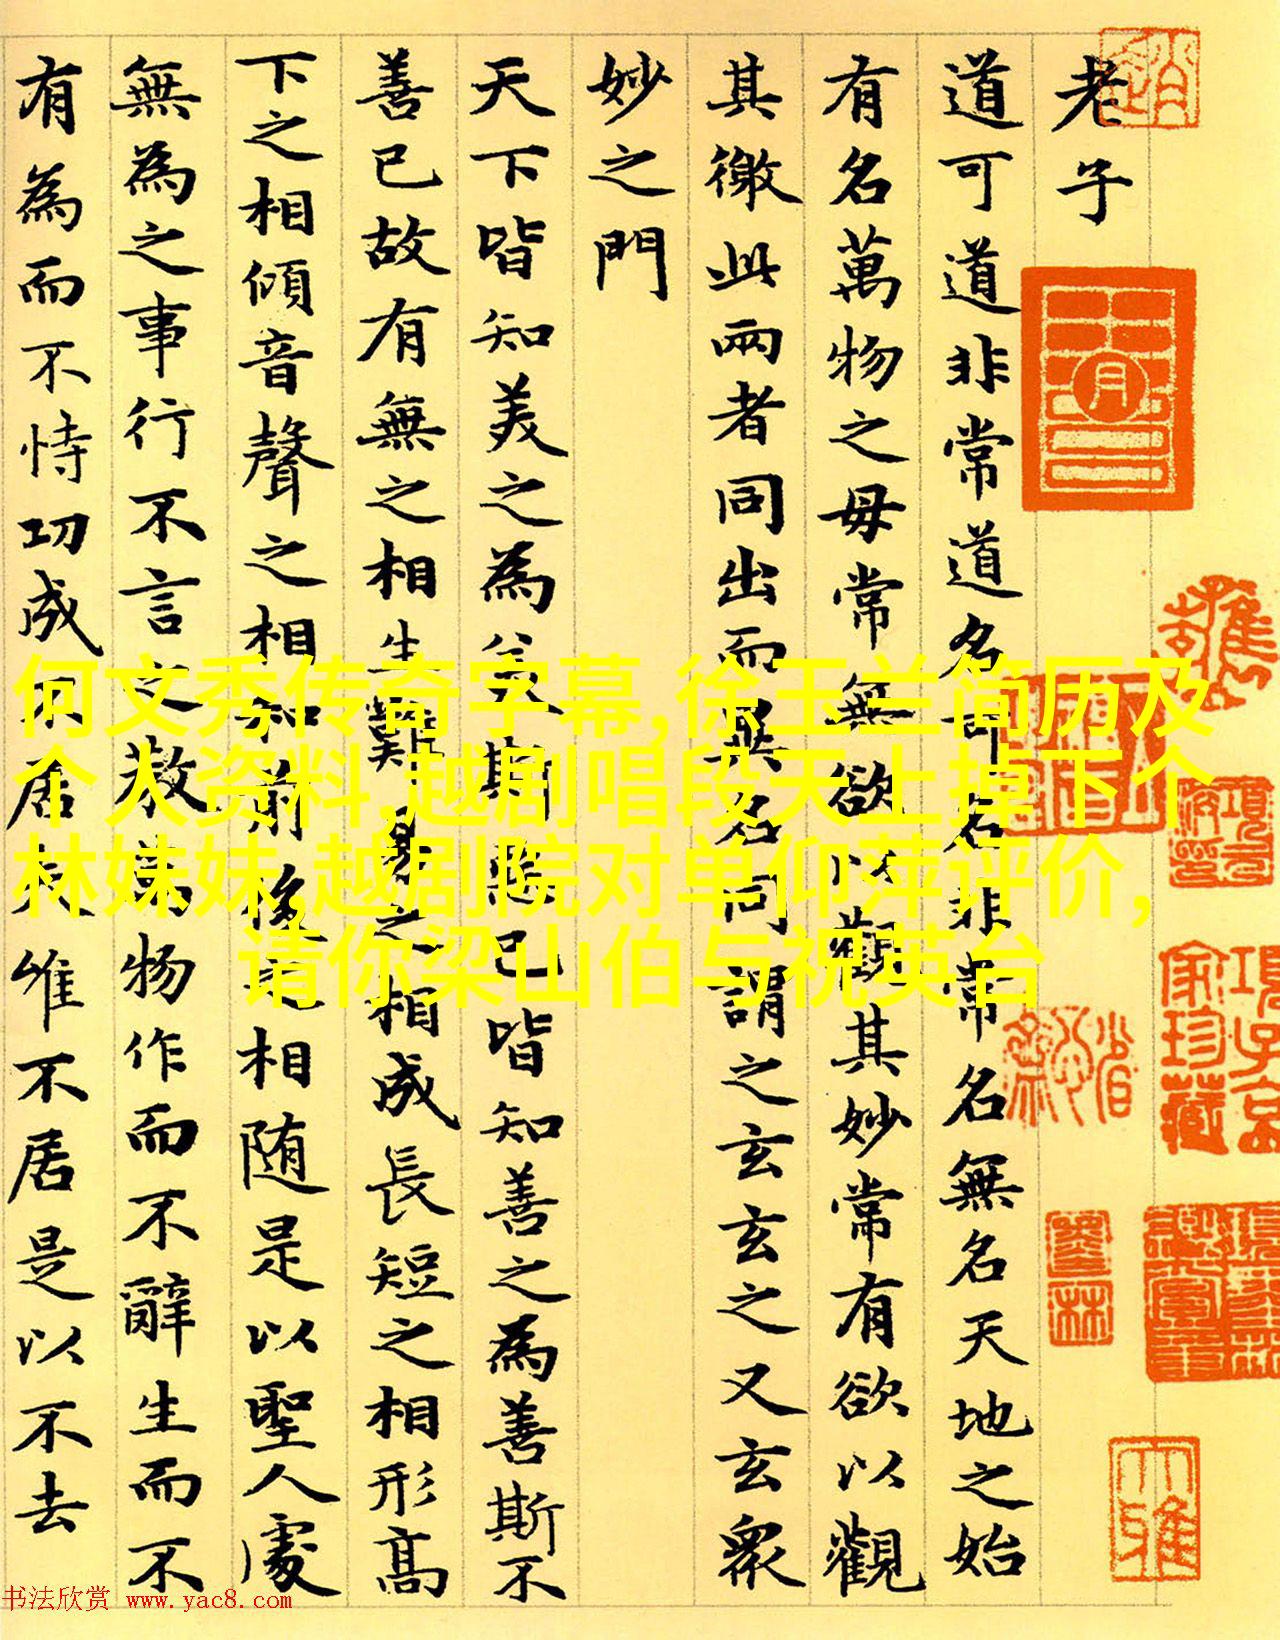 老子
道可道非常道名可名非常名無名天地之始
有名萬物之母常無欲以觀其妙常有欲以觀
其徼此兩者同出而異名同謂之玄玄之又玄眾
妙之門
天下皆知美之為美斯惡已皆知善之為善斯不
善已故有無之相生難易之相成長短之相形高
下之相傾音聲之相和前後之相隨是以聖人處
無為之事行不言之教萬物作而不辭生而不
有為而不恃功成不居夫唯不居是以不去
項子京
家珍藏
大雅
何文秀传奇字幕,徐玉兰简历及
个人资料,越剧唱段天上掉下个
林妹妹,越剧院对单仰萍评价,
请你梁山伯与祝英台
书法欣赏 www.yac8.com